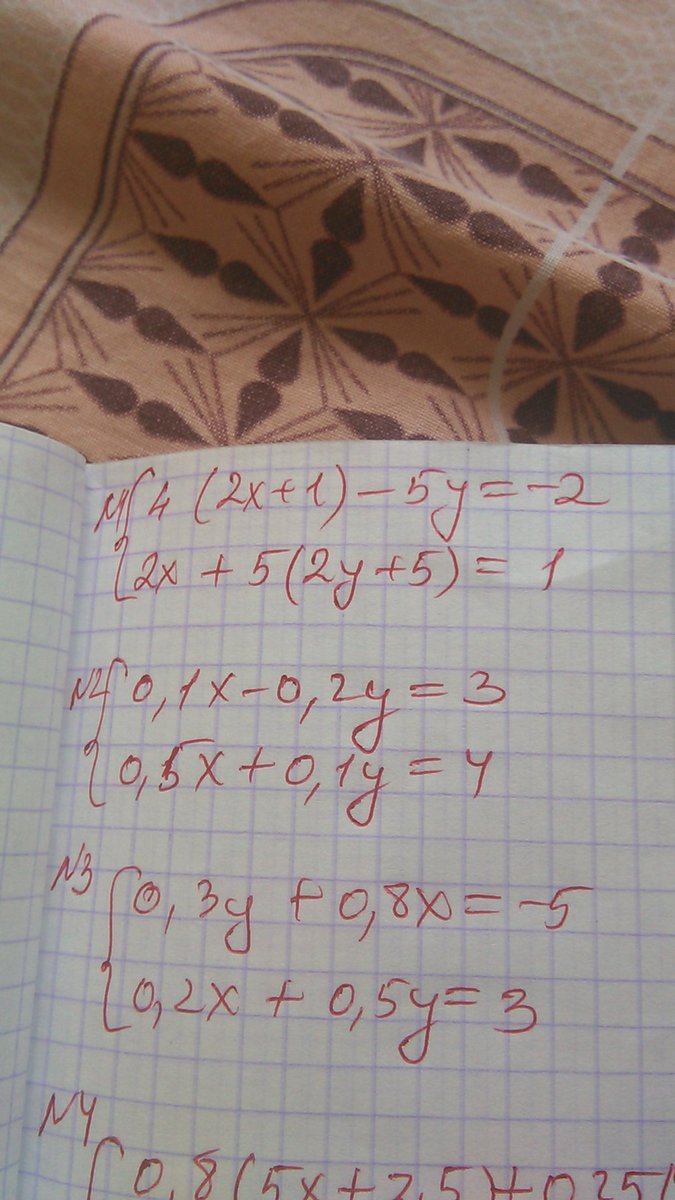 N1 { 4 (2x+1) - 5y = -2
2x + 5(2y+5) = 1
N2 { 0,1x - 0,2y = 3
0,5x + 0,1y = 4
N3 { 0,3y + 0,8x = -5
0,2x + 0,5y = 3
N4
{ 0,8(5x+2,5)+0,25(